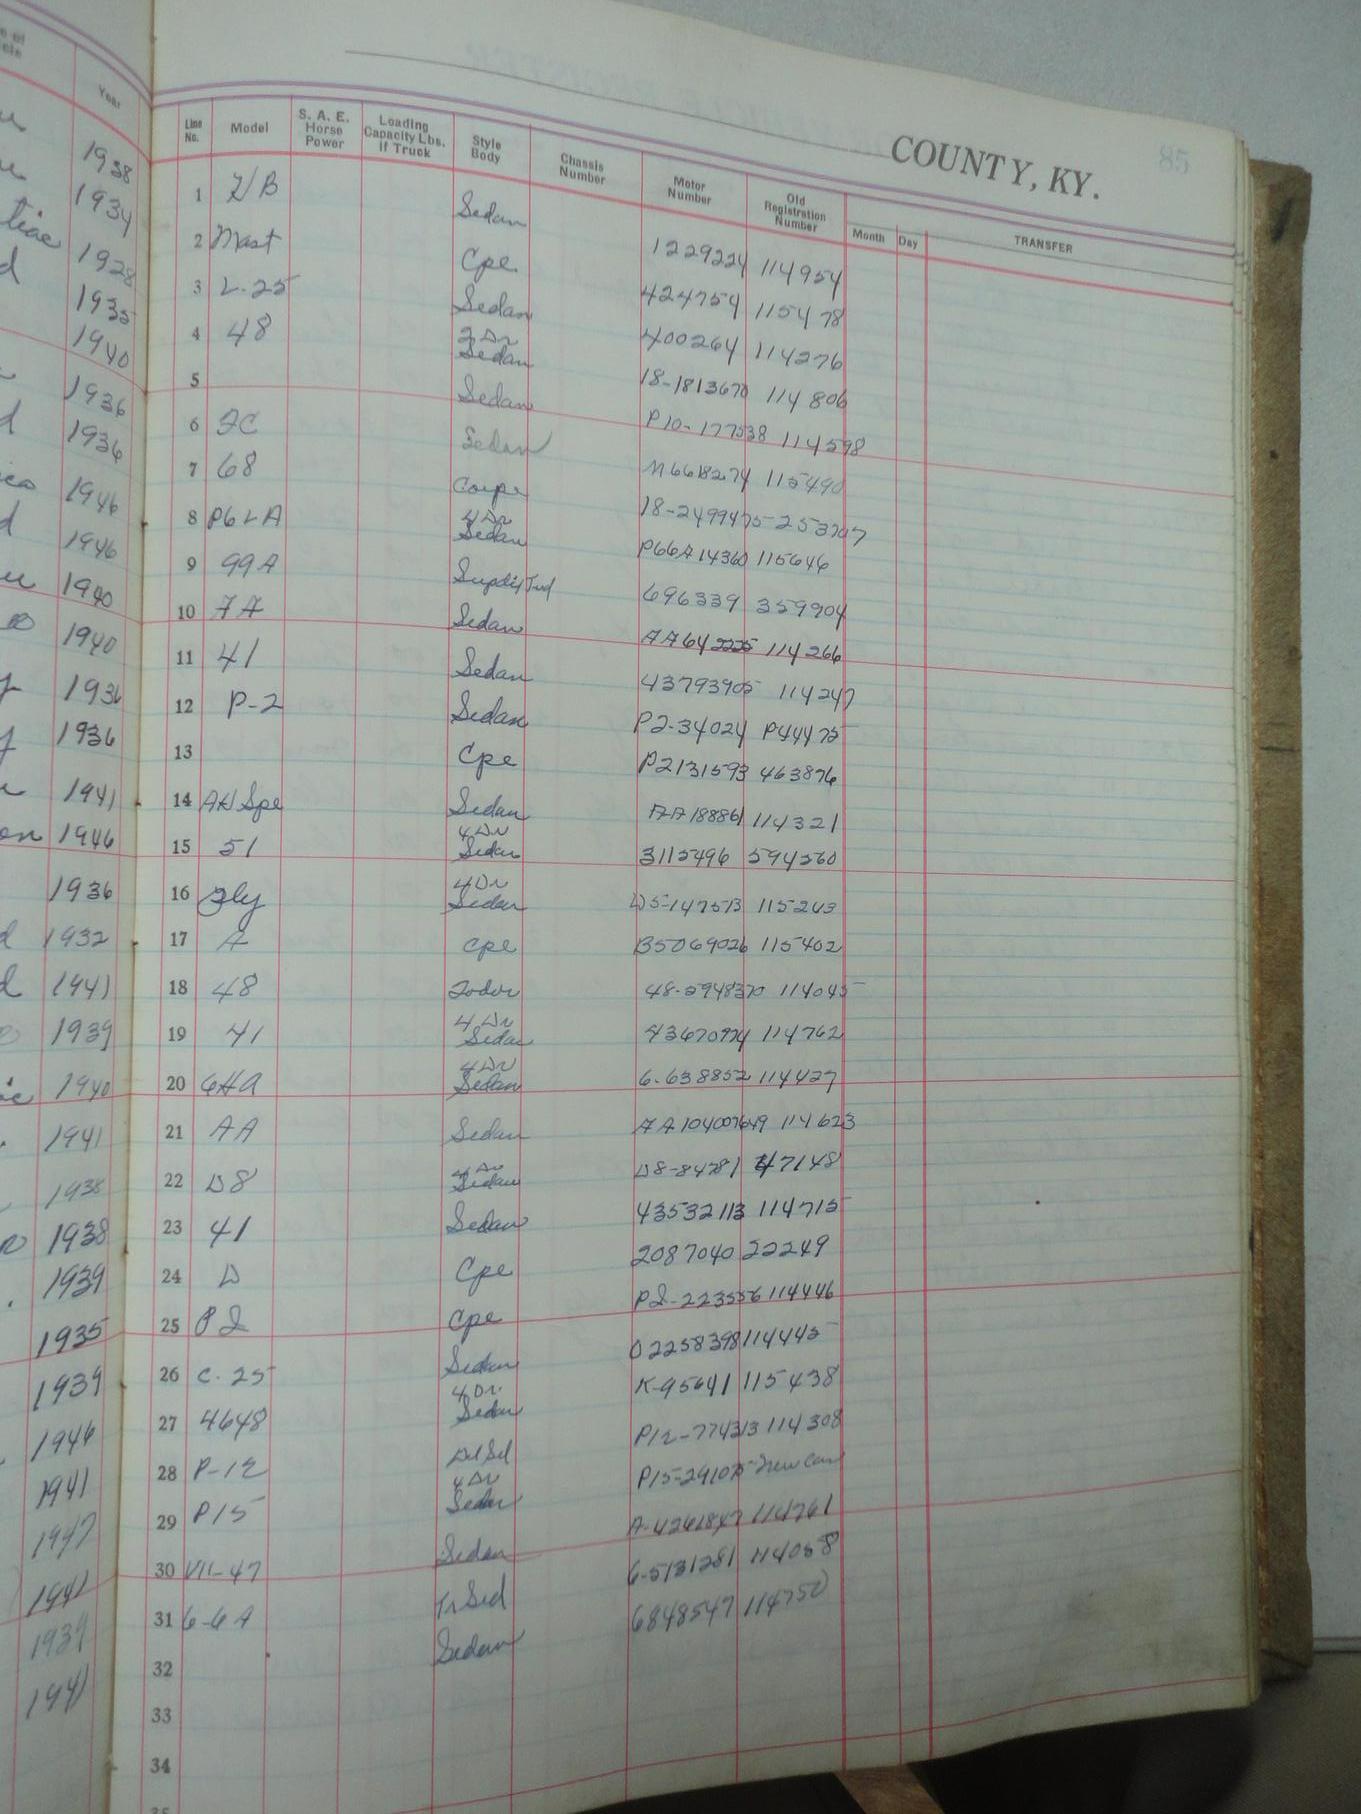 COUNTY, KY. 85
Year
Line No. Model S. A. E. Horse Power Loading Capacity Lbs. If Truck Style Body Chassis Number Motor Number Old Registration Number Month Day TRANSFER
1938
1934
1928
1935
1940
1936
1936
1946
1946
1940
1940
1936
1936
1941
1946
1936
1932
1941
1939
1940
1941
1938
1938
1939
1935
1939
1946
1941
1947
1941
1939
1941
1 Sedan 1229224 114954
2 Mast Cpe 424754 115478
3 L-25 Sedan 400264 114276
4 48 2 Dr Sedan 18-1813670 114806
5 Sedan P10-177538 114598
6 Sedan M6618274 115490
7 68 Coupe 18-2499475 253707
8 4 Dr Sedan P66A14360 115646
9 99A 696339 359904
10 Sedan 114266
11 41 Sedan 43793905 114247
12 P-2 Sedan P2-34024 P44475
13 Cpe P2131593 463876
14 Sedan 114321
15 51 4 Dr Sedan 3115496 594560
16 4 Dr Sedan D5-147513 115243
17 A Cpe B5069026 115402
18 48 Todor 114045
19 41 4 Dr Sedan 43670974 114762
20 6HA 4 Dr Sedan 6-638852 114427
21 AA Sedan 114623
22 D8 4 Dr Sedan D8-84781 47148
23 41 Sedan 43532113 114715
24 D Cpe 2087040 22249
25 P2 Cpe P2-223556 114446
26 C-25 Sedan 02258398 114445
27 4648 4 Dr. Sedan K-95641 115438
28 P-12 P12-774313 114308
29 P15 4 Dr Sedan New Car
30 Sedan A-4261847 114761
31 6-6A 6-5131281 114058
32 Sedan 6848547 114750
33
34
35